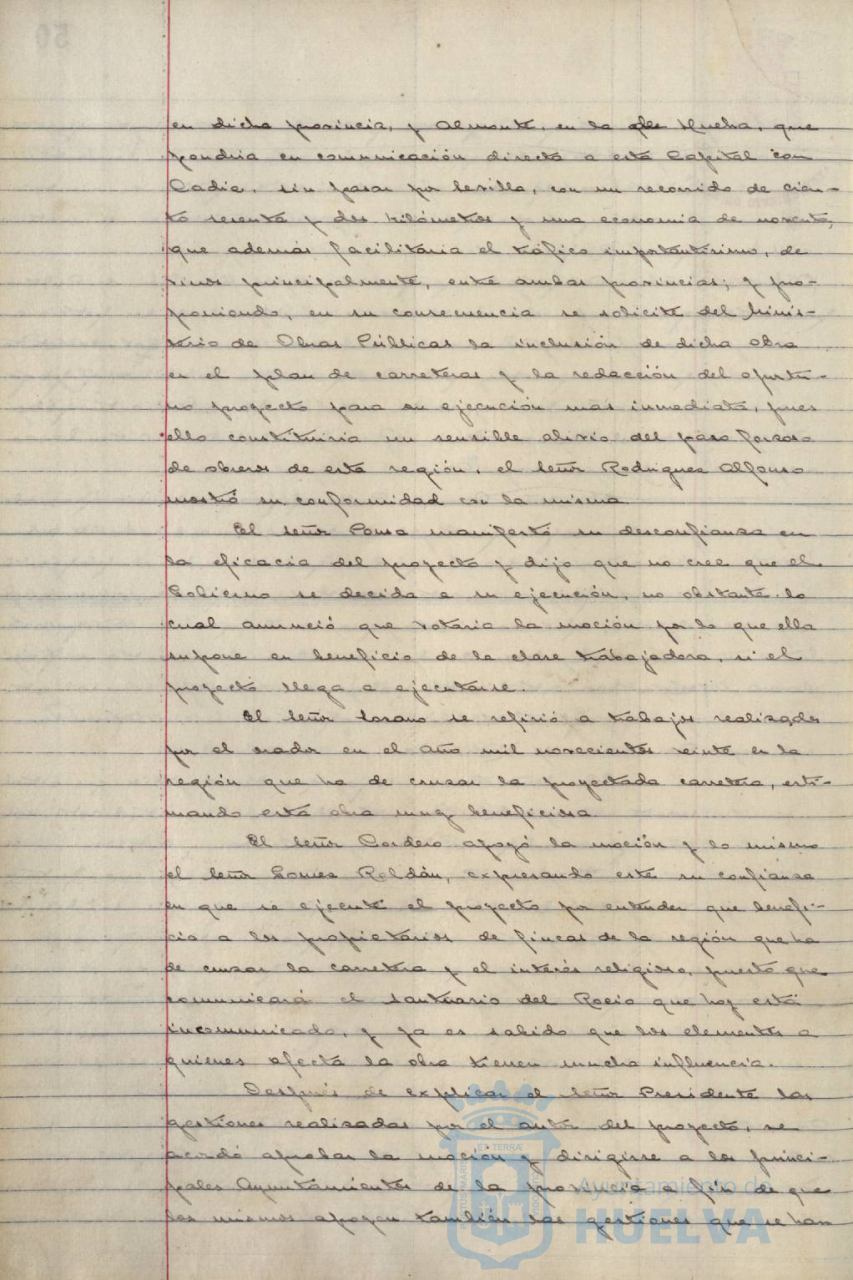 en dicha provincia, y Almonte, en la de Huelva, que
pondría en comunicación directa a esta Capital con
Cadiz, sin pasar por Sevilla, con un recorrido de cien-
to sesenta y dos kilómetros y una economia de noventa,
que además facilitaria el tráfico importantísimo, de
vinos principalmente, entre ambas provincias; y pro-
poniendo, en su consecuencia se solicite del Minis-
terio de Obras Públicas la inclusión de dicha obra
en el plan de carreteras y la redacción del oportu-
no proyecto para su ejecución mas inmediata, pues
ello constituiria un sensible alivio del paro forzoso
de obreros de esta región, el Señor Rodriguez Alfonso
mostró su conformidad con la misma
El Señor Ponsa manifestó su desconfianza en
la eficacia del proyecto y dijo que no cree que el
Gobierno se decida a su ejecución, no obstante lo
cual anunció que votaria la moción por lo que ella
supone en beneficio de la clase trabajadora, si el
proyecto llega a ejecutarse.
El Señor Lozano se refirió a trabajos realizados
por el orador en el año mil novecientos veinte en la
región que ha de cruzar la proyectada carretera, esti-
mando esta obra muy beneficiosa
El Señor Cordero apoyó la moción y lo mismo
el Señor Gomez Roldán, expresando este su confianza
en que se ejecute el proyecto por entender que benefi-
cia a los propietarios de fincas de la región que ha
de cruzar la carretera y el interés religioso, puesto que
comunicará el santuario del Rocio que hoy está
incomunicado, y ya es sabido que los elementos a
quienes afecta la obra tienen mucha influencia.
Después de explicar el Señor Presidente las
gestiones realizadas por el autor del proyecto, se
acordó aprobar la moción y dirigirse a los princi-
pales Ayuntamientos de la provincia a fin de que
los mismos apoyen también las gestiones que se han
Ayuntamiento de
HUELVA